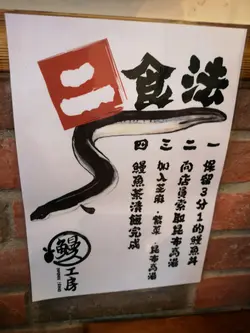 二食法
一 保留3分1的鰻魚丼
二 向店員索取昆布高湯
三 加入芝麻﹑紫菜﹑昆布高湯
四 鰻魚茶漬飯完成
鰻
工房